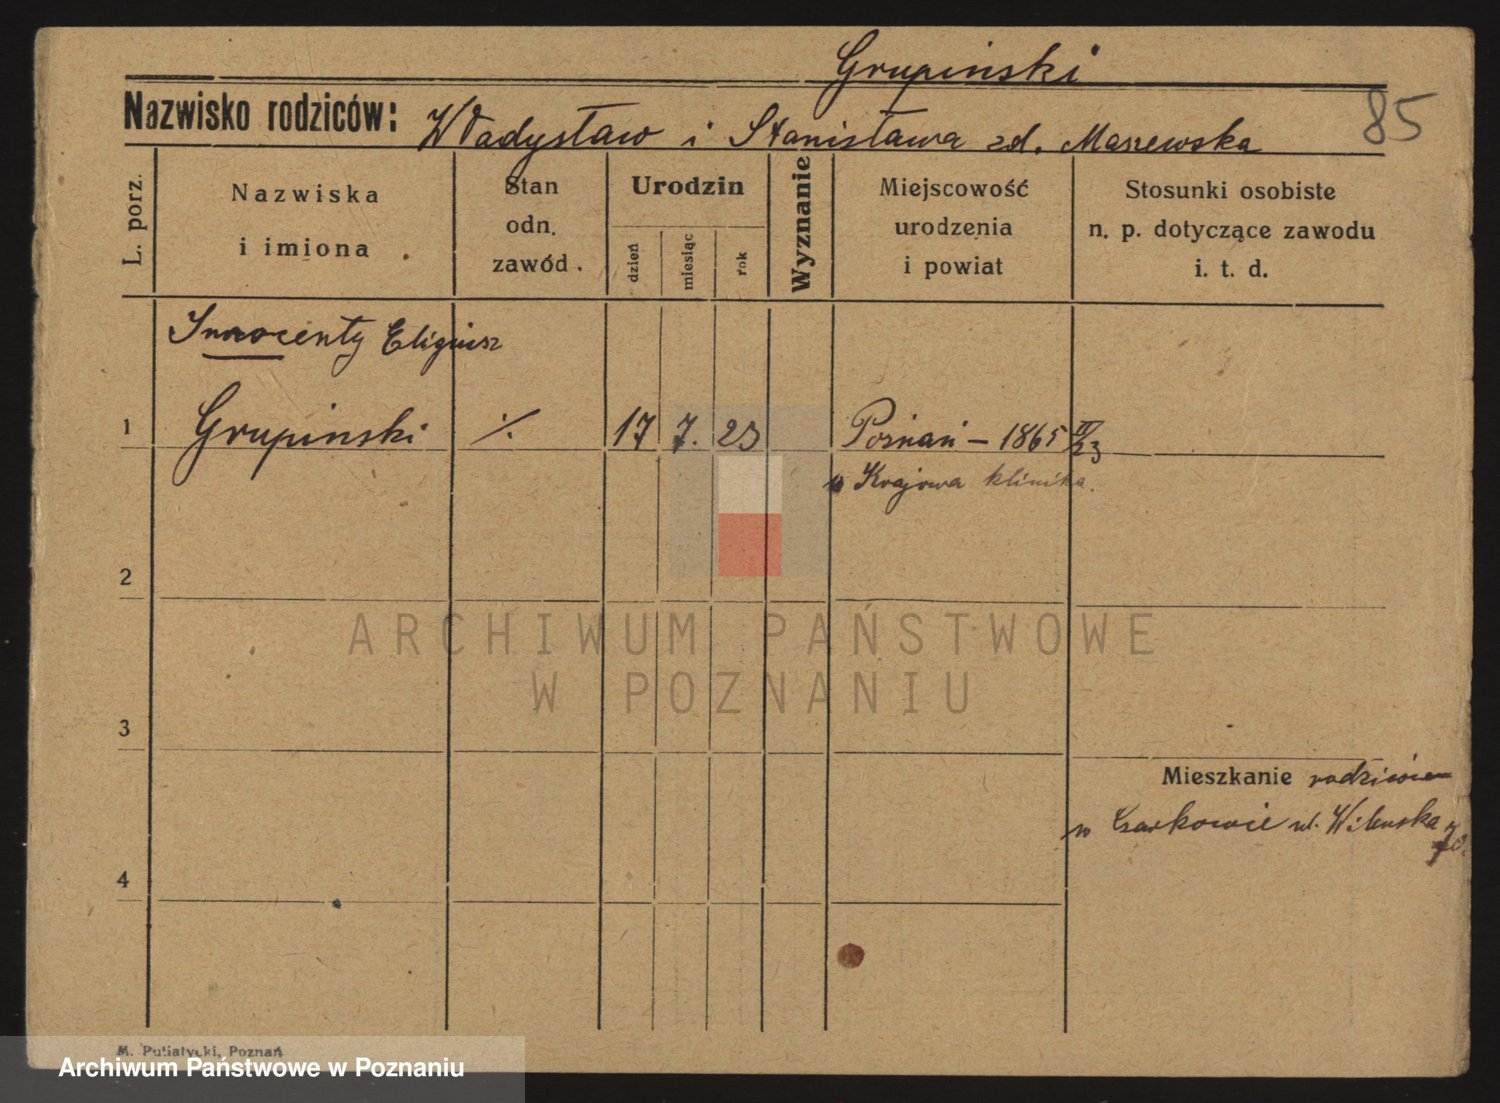 Grupiński
85
Nazwisko rodziców: Władysław i Stanisława zd. Maszewska
L. porz.
Nazwiska
i imiona
Stan
odn.
zawód.
Urodzin
dzień
miesiąc
rok
Wyznanie
Miejscowość
urodzenia
i powiat
Stosunki osobiste
n. p. dotyczące zawodu
i. t. d.
Innocenty Eligiusz
1 Grupinski ·/. 17 7. 23 Poznań – 1865 IV/23
w Krajowa klinika.
2
ARCHIWUM PAŃSTWOWE
W POZNANIU
3
Mieszkanie rodziców
w Czarkowie ul.
4
M. Putiatycki, Poznań
Archiwum Państwowe w Poznaniu